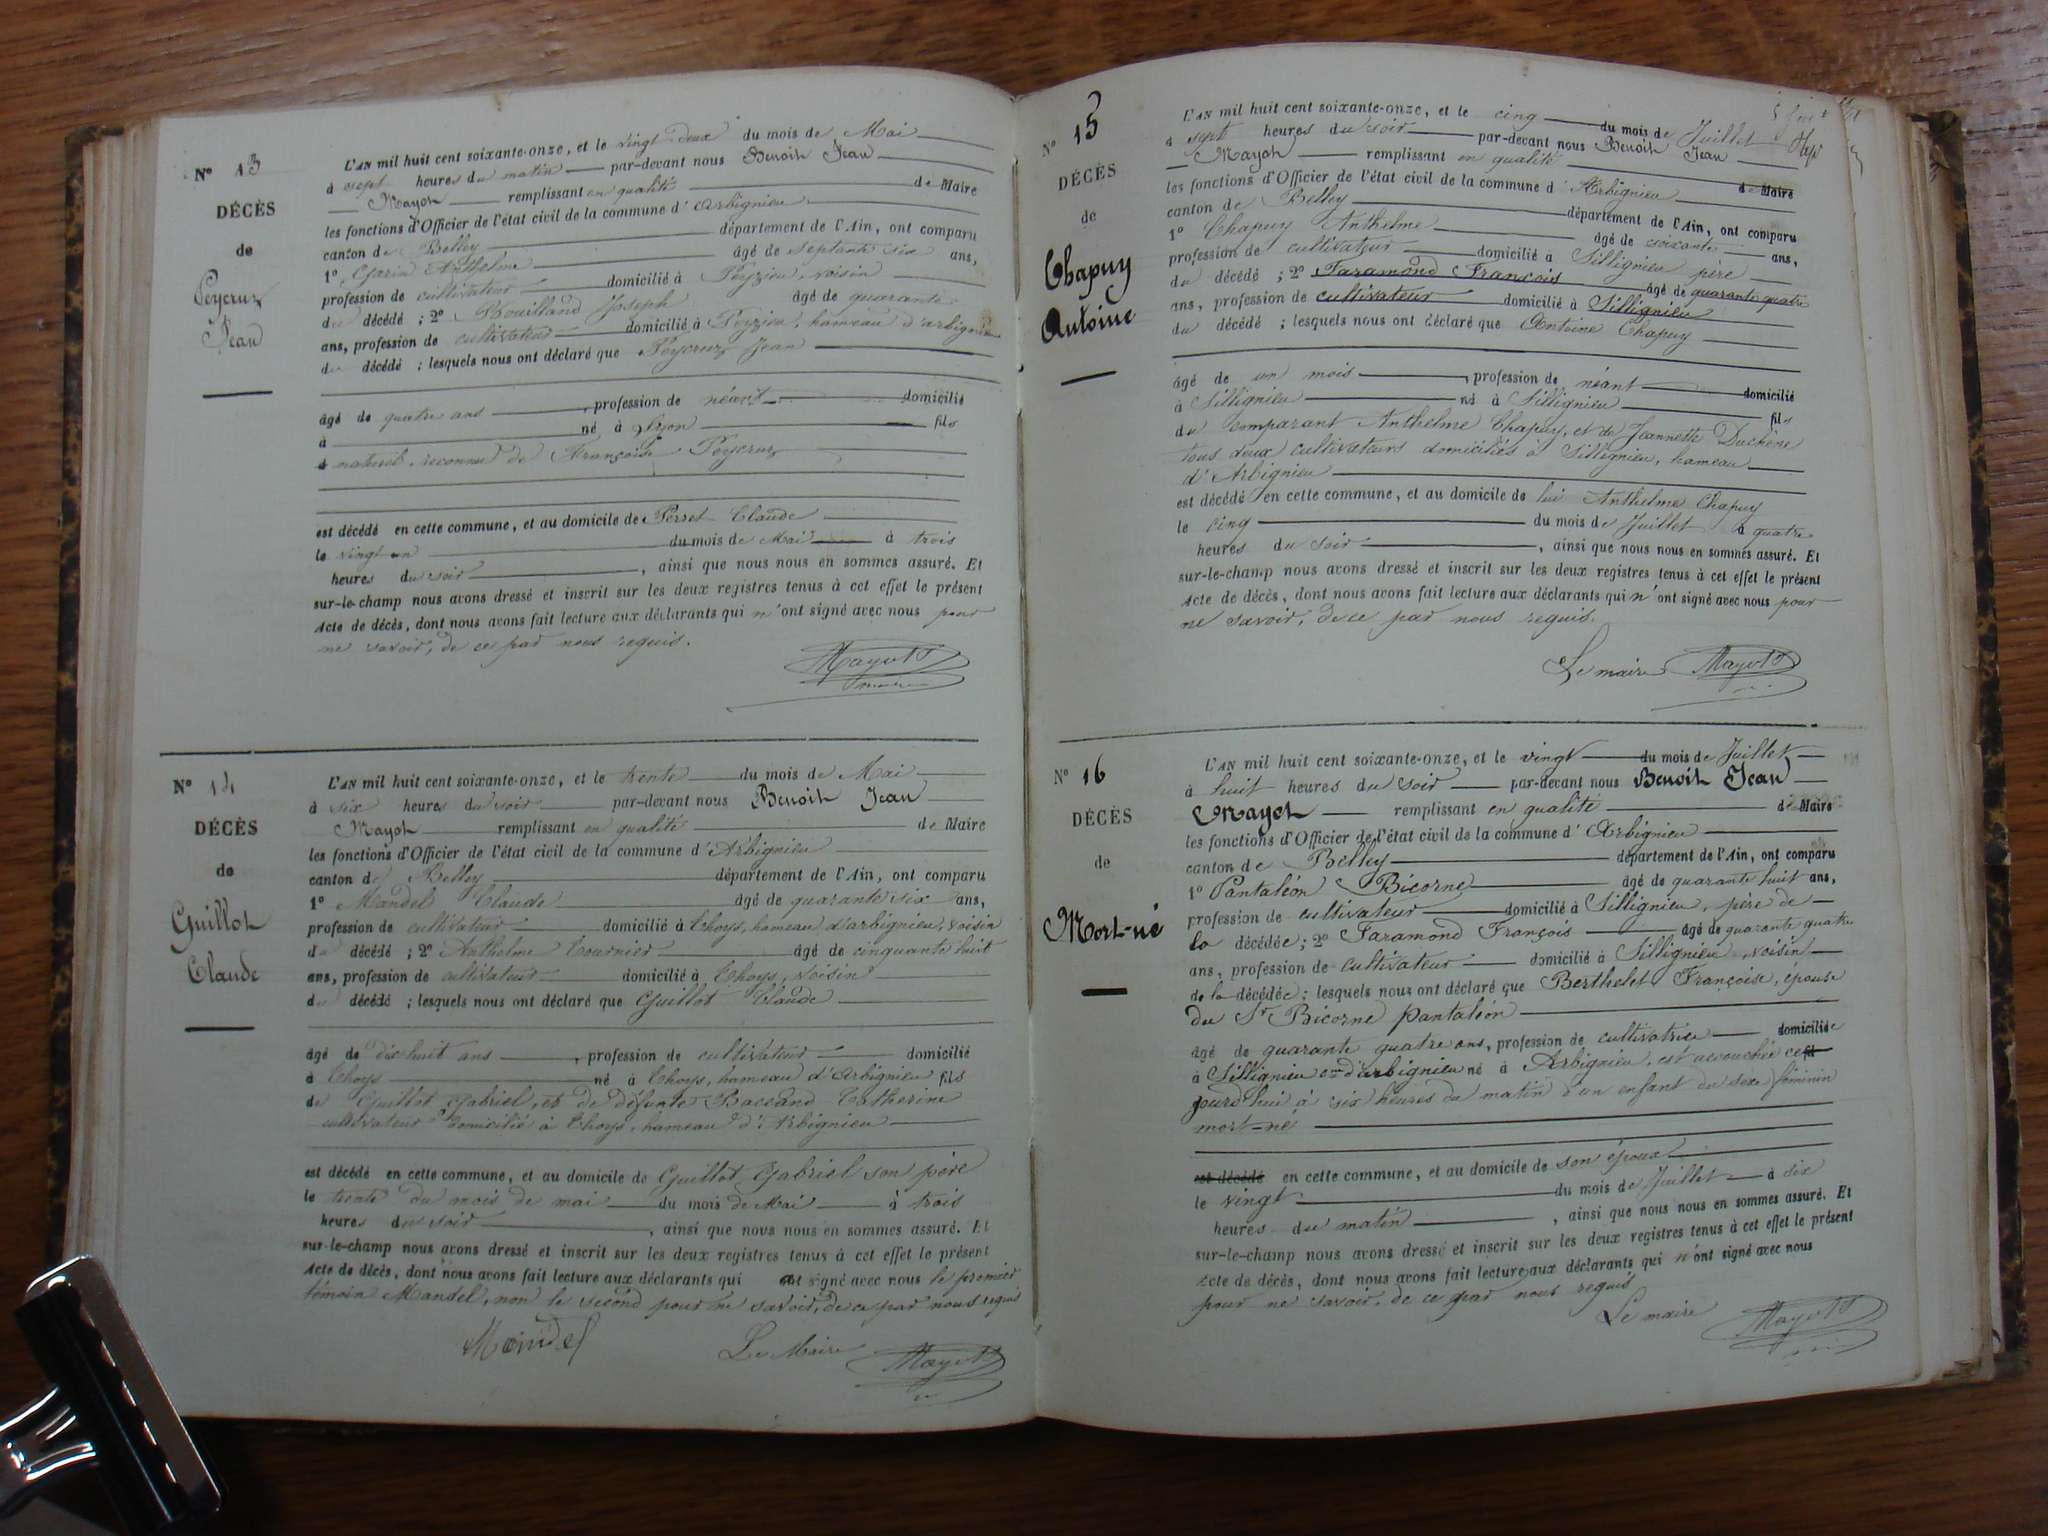 N° 13
DÉCÈS
de
Peycruz
Jean
L'AN mil huit cent soixante-onze, et le vingt deux du mois de Mai
à sept heures du matin par-devant nous Benoit Jean
Mayot remplissant en qualité de Maire
les fonctions d'Officier de l'état civil de la commune d'Arbignieu
canton de Belley département de l'Ain, ont comparu
1° Garin Anthelme âgé de septante six ans,
profession de cultivateur domicilié à Peyzieu, voisin
du décédé ; 2° Rouilland Joseph âgé de quarante
ans, profession de cultivateur domicilié à Peyzieu, hameau d'arbignieu
du décédé ; lesquels nous ont déclaré que Peycruz Jean
âgé de quatre ans, profession de néant domicilié
à né à Lyon fils
d naturel reconnu de Françoise Peycruz
est décédé en cette commune, et au domicile de Perret Claude
le vingt un du mois de Mai à trois
heures du soir, ainsi que nous nous en sommes assuré. Et
sur-le-champ nous avons dressé et inscrit sur les deux registres tenus à cet effet le présent
Acte de décès, dont nous avons fait lecture aux déclarants qui n'ont signé avec nous pour
ne savoir, de ce par nous requis.
Mayot
N° 14
DÉCÈS
de
Guillot
Claude
L'AN mil huit cent soixante-onze, et le trente du mois de Mai
à six heures du soir par-devant nous Benoit Jean
Mayot remplissant en qualité de Maire
les fonctions d'Officier de l'état civil de la commune d'Arbignieu
canton de Belley département de l'Ain, ont comparu
1° Mandel Claude âgé de quarante six ans,
profession de cultivateur domicilié à Thoys, hameau d'arbignieu, voisin
du décédé ; 2° Anthelme Tournier âgé de cinquante huit
ans, profession de cultivateur domicilié à Thoys, voisin
du décédé ; lesquels nous ont déclaré que Guillot Claude
âgé de dix huit ans, profession de cultivateur domicilié
à Thoys né à Thoys, hameau d'Arbignieu fils
de Guillot Gabriel, et de défunte Baccand Catherine
cultivateur domicilié à Thoys, hameau d'Arbignieu
est décédé en cette commune, et au domicile de Guillot Gabriel son père
le trente du mois de mai du mois de Mai à trois
heures du soir, ainsi que nous nous en sommes assuré. Et
sur-le-champ nous avons dressé et inscrit sur les deux registres tenus à cet effet le présent
Acte de décès, dont nous avons fait lecture aux déclarants qui ont signé avec nous le premier
témoin Mandel, non le second pour ne savoir, de ce par nous requis
Mandel Le Maire Mayot
N° 15
DÉCÈS
de
Chapuy
Antoine
L'AN mil huit cent soixante-onze, et le cinq du mois de Juillet
à sept heures du soir par-devant nous Benoit Jean
Mayot remplissant en qualité de Maire
les fonctions d'Officier de l'état civil de la commune d'Arbignieu
canton de Belley département de l'Ain, ont comparu
1° Chapuy Anthelme âgé de soixante ans,
profession de cultivateur domicilié à Sillignieu père
du décédé ; 2° Faramond François âgé de quarante quatre
ans, profession de cultivateur domicilié à Sillignieu
du décédé ; lesquels nous ont déclaré que Antoine Chapuy
âgé de un mois, profession de néant domicilié
à Sillignieu né à Sillignieu fils
du comparant Anthelme Chapuy, et de Jeannette Duchêne
tous deux cultivateurs domiciliés à Sillignieu, hameau
d'Arbignieu
est décédé en cette commune, et au domicile de lui Anthelme Chapuy
le cinq du mois de Juillet à quatre
heures du soir, ainsi que nous nous en sommes assuré. Et
sur-le-champ nous avons dressé et inscrit sur les deux registres tenus à cet effet le présent
Acte de décès, dont nous avons fait lecture aux déclarants qui n'ont signé avec nous pour
ne savoir, de ce par nous requis.
Le maire Mayot
N° 16
DÉCÈS
de
Mort-né
L'AN mil huit cent soixante-onze, et le vingt du mois de Juillet
à huit heures du soir par-devant nous Benoit Jean
Mayot remplissant en qualité de Maire
les fonctions d'Officier de l'état civil de la commune d'Arbignieu
canton de Belley département de l'Ain, ont comparu
1° Pantaléon Bicorne âgé de quarante huit ans,
profession de cultivateur domicilié à Sillignieu, père de
la décédée ; 2° Faramond François âgé de quarante quatre
ans, profession de cultivateur domicilié à Sillignieu voisin
de la décédée ; lesquels nous ont déclaré que Berthelet Françoise, épouse
du Sr Bicorne pantaléon
âgé de quarante quatre ans, profession de cultivatrice domiciliée
à Sillignieu cne d'arbignieu né à Arbignieu, est accouchée ce
jourd'hui à six heures du matin d'un enfant du sexe féminin
mort-né
est décédé en cette commune, et au domicile de son époux
le vingt du mois de Juillet à six
heures du matin, ainsi que nous nous en sommes assuré. Et
sur-le-champ nous avons dressé et inscrit sur les deux registres tenus à cet effet le présent
Acte de décès, dont nous avons fait lecture aux déclarants qui n'ont signé avec nous
pour ne savoir, de ce par nous requis
Le maire Mayot